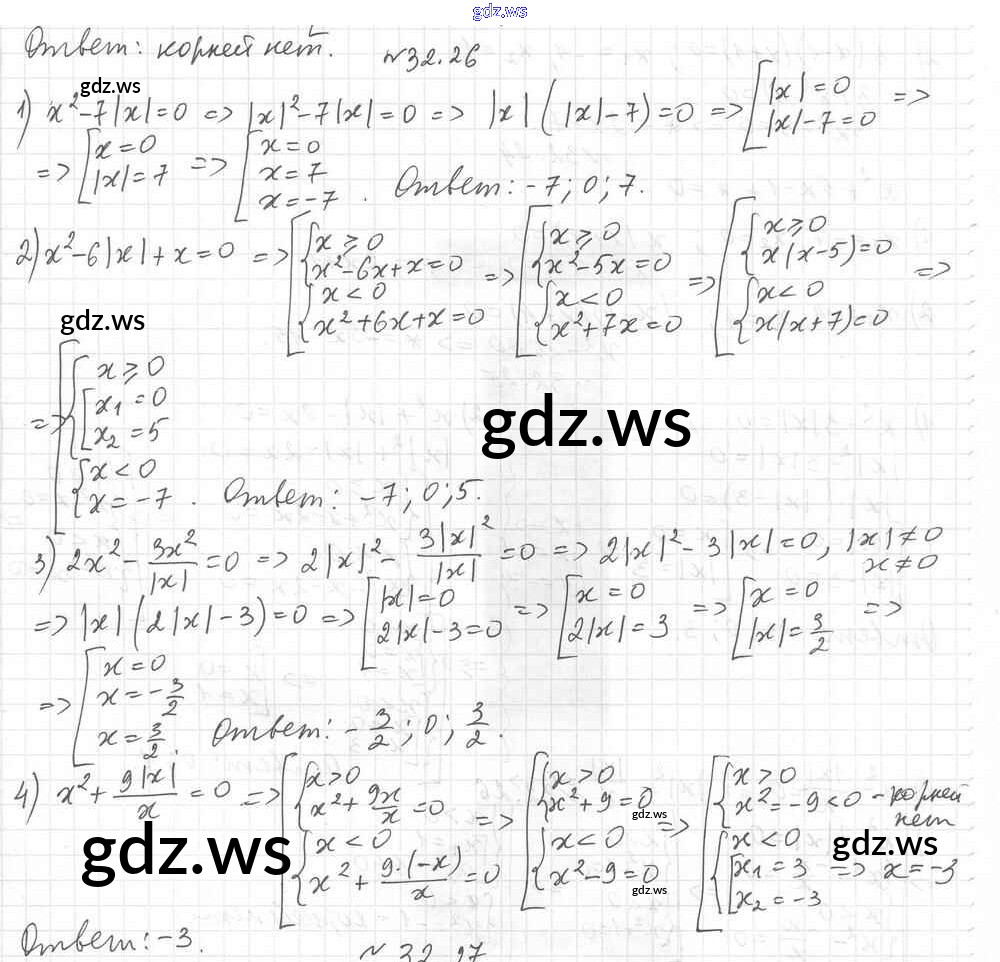 gdz.ws
Ответ: корней нет. №32.26
gdz.ws
1) x²-7|x|=0 => |x|²-7|x|=0 => |x|(|x|-7)=0 => [|x|=0 |x|-7=0 =>
=> [x=0 |x|=7 => [x=0 x=7 x=-7. Ответ: -7; 0; 7.
2) x²-6|x|+x=0 => [{x⩾0 x²-6x+x=0 {x<0 x²+6x+x=0 => [{x⩾0 x²-5x=0 {x<0 x²+7x=0 => [{x⩾0 x(x-5)=0 {x<0 x(x+7)=0 =>
gdz.ws
=> [{x⩾0 [x₁=0 x₂=5 {x<0 x=-7. Ответ: -7; 0; 5.
gdz.ws
3) 2x² - 3x²/|x| = 0 => 2|x|² - 3|x|²/|x| = 0 => 2|x|²-3|x|=0, |x|≠0 x≠0
=> |x|(2|x|-3)=0 => [|x|=0 2|x|-3=0 => [x=0 2|x|=3 => [x=0 |x|=3/2 =>
=> [x=0 x=-3/2 x=3/2. Ответ: -3/2; 0; 3/2.
4) x² + 9|x|/x = 0 => [{x>0 x²+9x/x=0 {x<0 x²+9·(-x)/x=0 => [{x>0 x²+9=0 {x<0 x²-9=0 => [{x>0 x²=-9<0 - корней нет {x<0 [x₁=3 x₂=-3 => x=-3
gdz.ws
gdz.ws
gdz.ws
gdz.ws
Ответ: -3. №32.27